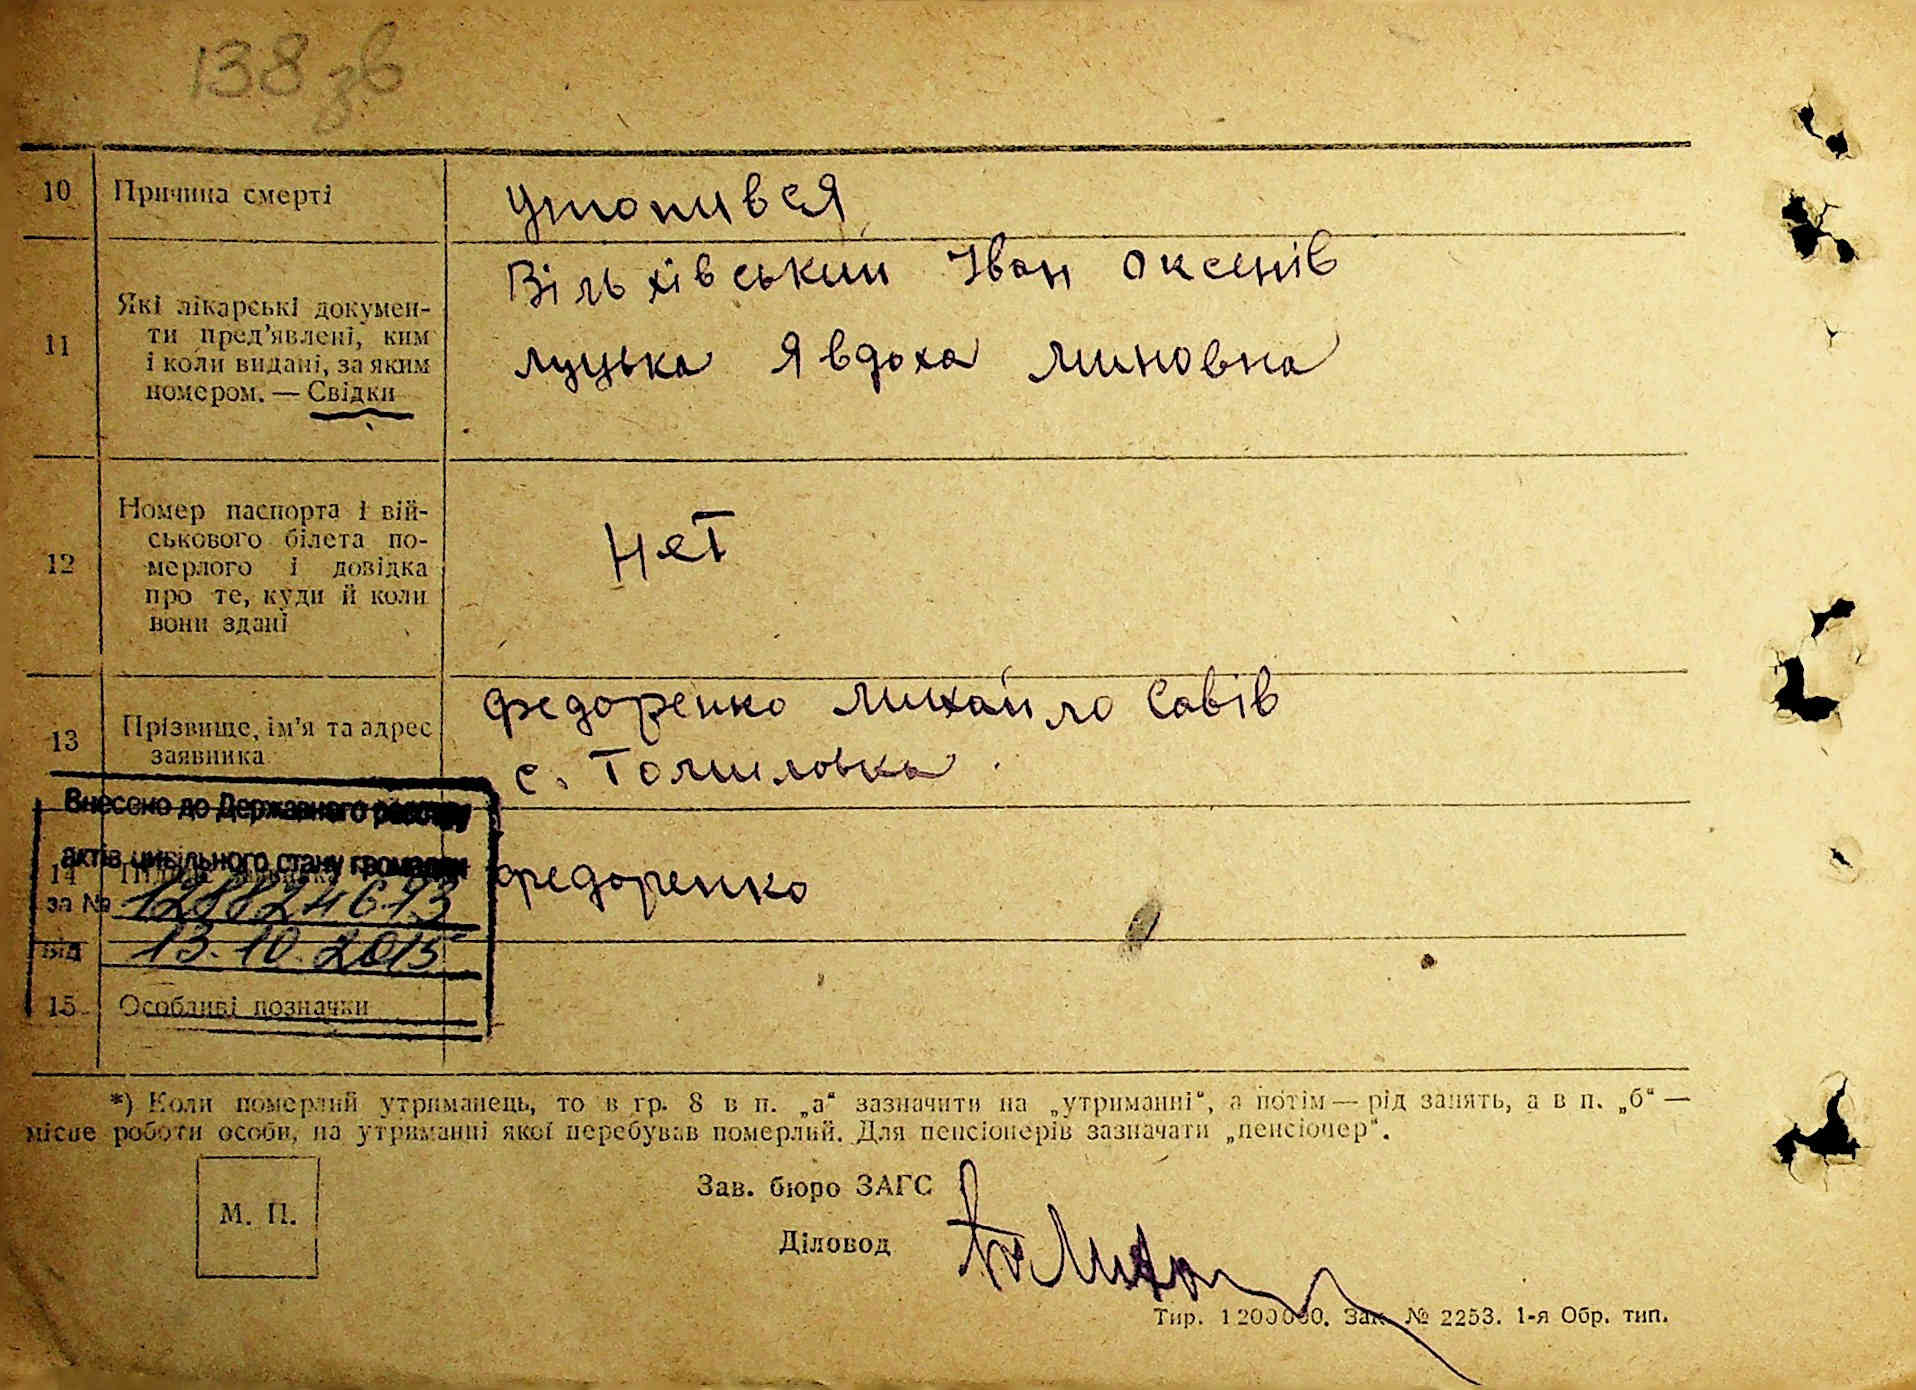 138 зв
10 Причина смерті утопився
Вільхівський Іван Оксенів
Які лікарські докумен-
ти пред'явлені, ким
11 і коли видані, за яким луцька Явдоха Миновна
номером. — Свідки
Номер паспорта і вій-
ськового білета по-
12 мерлого і довідка Нет
про те, куди й коли
вони здані
Федоренко Михайло Савів
13 Прізвище, ім'я та адрес
заявника с. Томиловка.
Внесено до Державного реєстру
актів цивільного стану громадян
14 федоренко
за № 128824673
від 13.10.2015
15 Особливі позначки
*) Коли померлий утриманець, то в гр. 8 в п. „а“ зазначити на „утриманні“, а потім — рід занять, а в п. „б“ —
місце роботи особи, на утриманні якої перебував померлий. Для пенсіонерів зазначати „пенсіонер“.
Зав. бюро ЗАГС
М. П.
Діловод
Тир. 1200000. Зак. № 2253. 1-я Обр. тип.